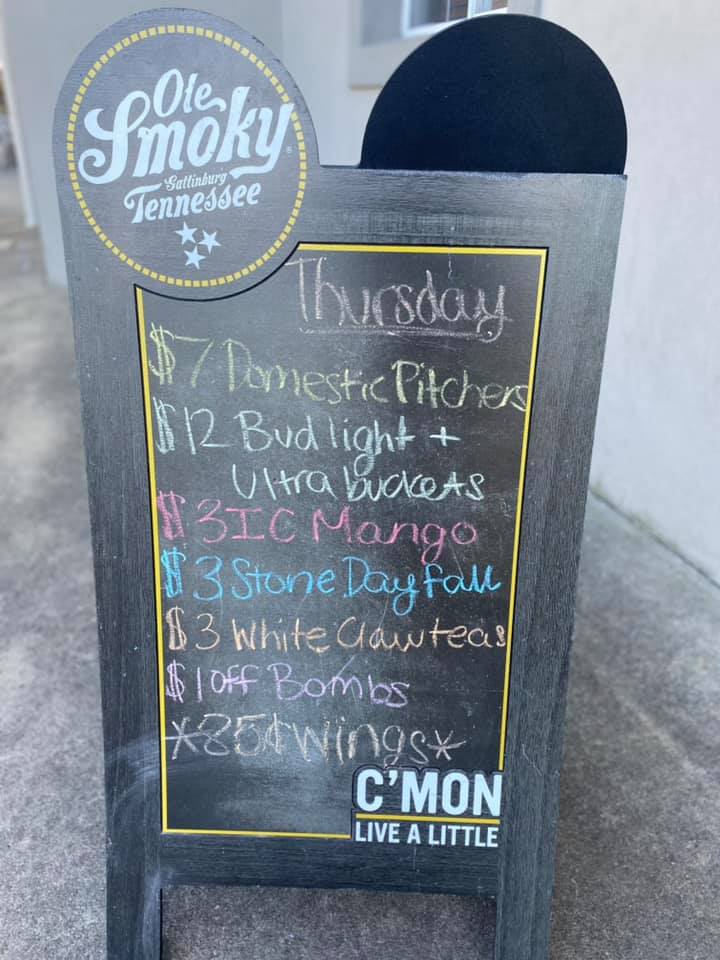 Ole
Smoky
Gatlinburg
Tennessee
Thursday
$7 Domestic Pitchers
$12 Bud light +
Ultra buckets
$3 IC Mango
$3 Stone Dayfall
$3 White Claw teas
$1 off Bombs
*85¢ Wings*
C'MON
LIVE A LITTLE